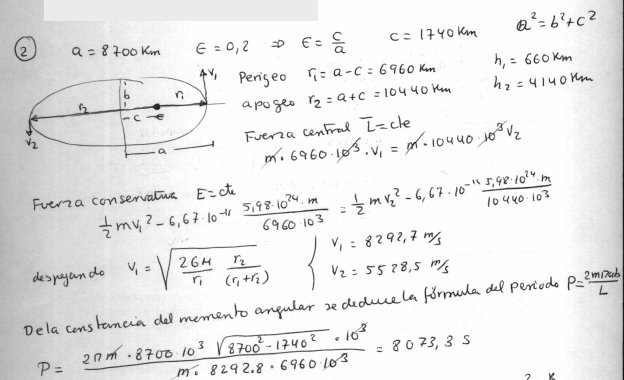 ② a = 8700 Km ϵ = 0,2 ⇒ ϵ = c/a c = 1740 Km a² = b² + c²
Perigeo r₁ = a - c = 6960 Km h₁ = 660 Km
apogeo r₂ = a + c = 10440 Km h₂ = 4140 Km
v₁ b r₂ r₁ c a v₂
Fuerza central L̄ = cte
m · 6960 · 10³ · v₁ = m · 10440 · 10³ v₂
Fuerza conservativa E = cte
1/2 m v₁² - 6,67 · 10⁻¹¹ 5,98 · 10²⁴ · m / 6960 · 10³ = 1/2 m v₂² - 6,67 · 10⁻¹¹ 5,98 · 10²⁴ · m / 10440 · 10³
despejando v₁ = √(2GM/r₁ r₂/(r₁+r₂)) { v₁ = 8292,7 m/s
v₂ = 5528,5 m/s
De la constancia del momento angular se deduce la fórmula del periodo P = 2mπab/L
P = 2πm · 8700 · 10³ √(8700² - 1740²) · 10³ / m · 8292.8 · 6960 · 10³ = 8073,3 s